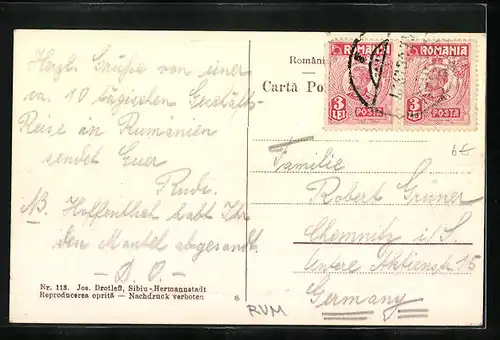 Herzl. Grüße von einer
ca. 10 tägigen Geschäfts-
Reise an Rumänien
sendet Euer
Rudi.
NB. Hoffentlich habt Ihr
den Mantel abgesandt.
- D. O. -
Nr. 118. Jos. Drotleff, Sibiu-Hermannstadt
Reproducerea oprită — Nachdruck verboten
*
RUM
Români
Cartă Po
ROMANIA
3
LEI
POSTA
ROMANIA
3
LEI
POSTA
6€
Familie
Robert Grüner
Chemnitz i/S.
Untere Aktienstr 15
Germany